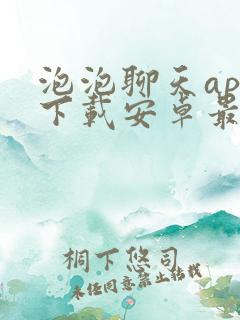 泡泡聊天ap
下载安卓最
桐下悠司
未经同意禁止转载